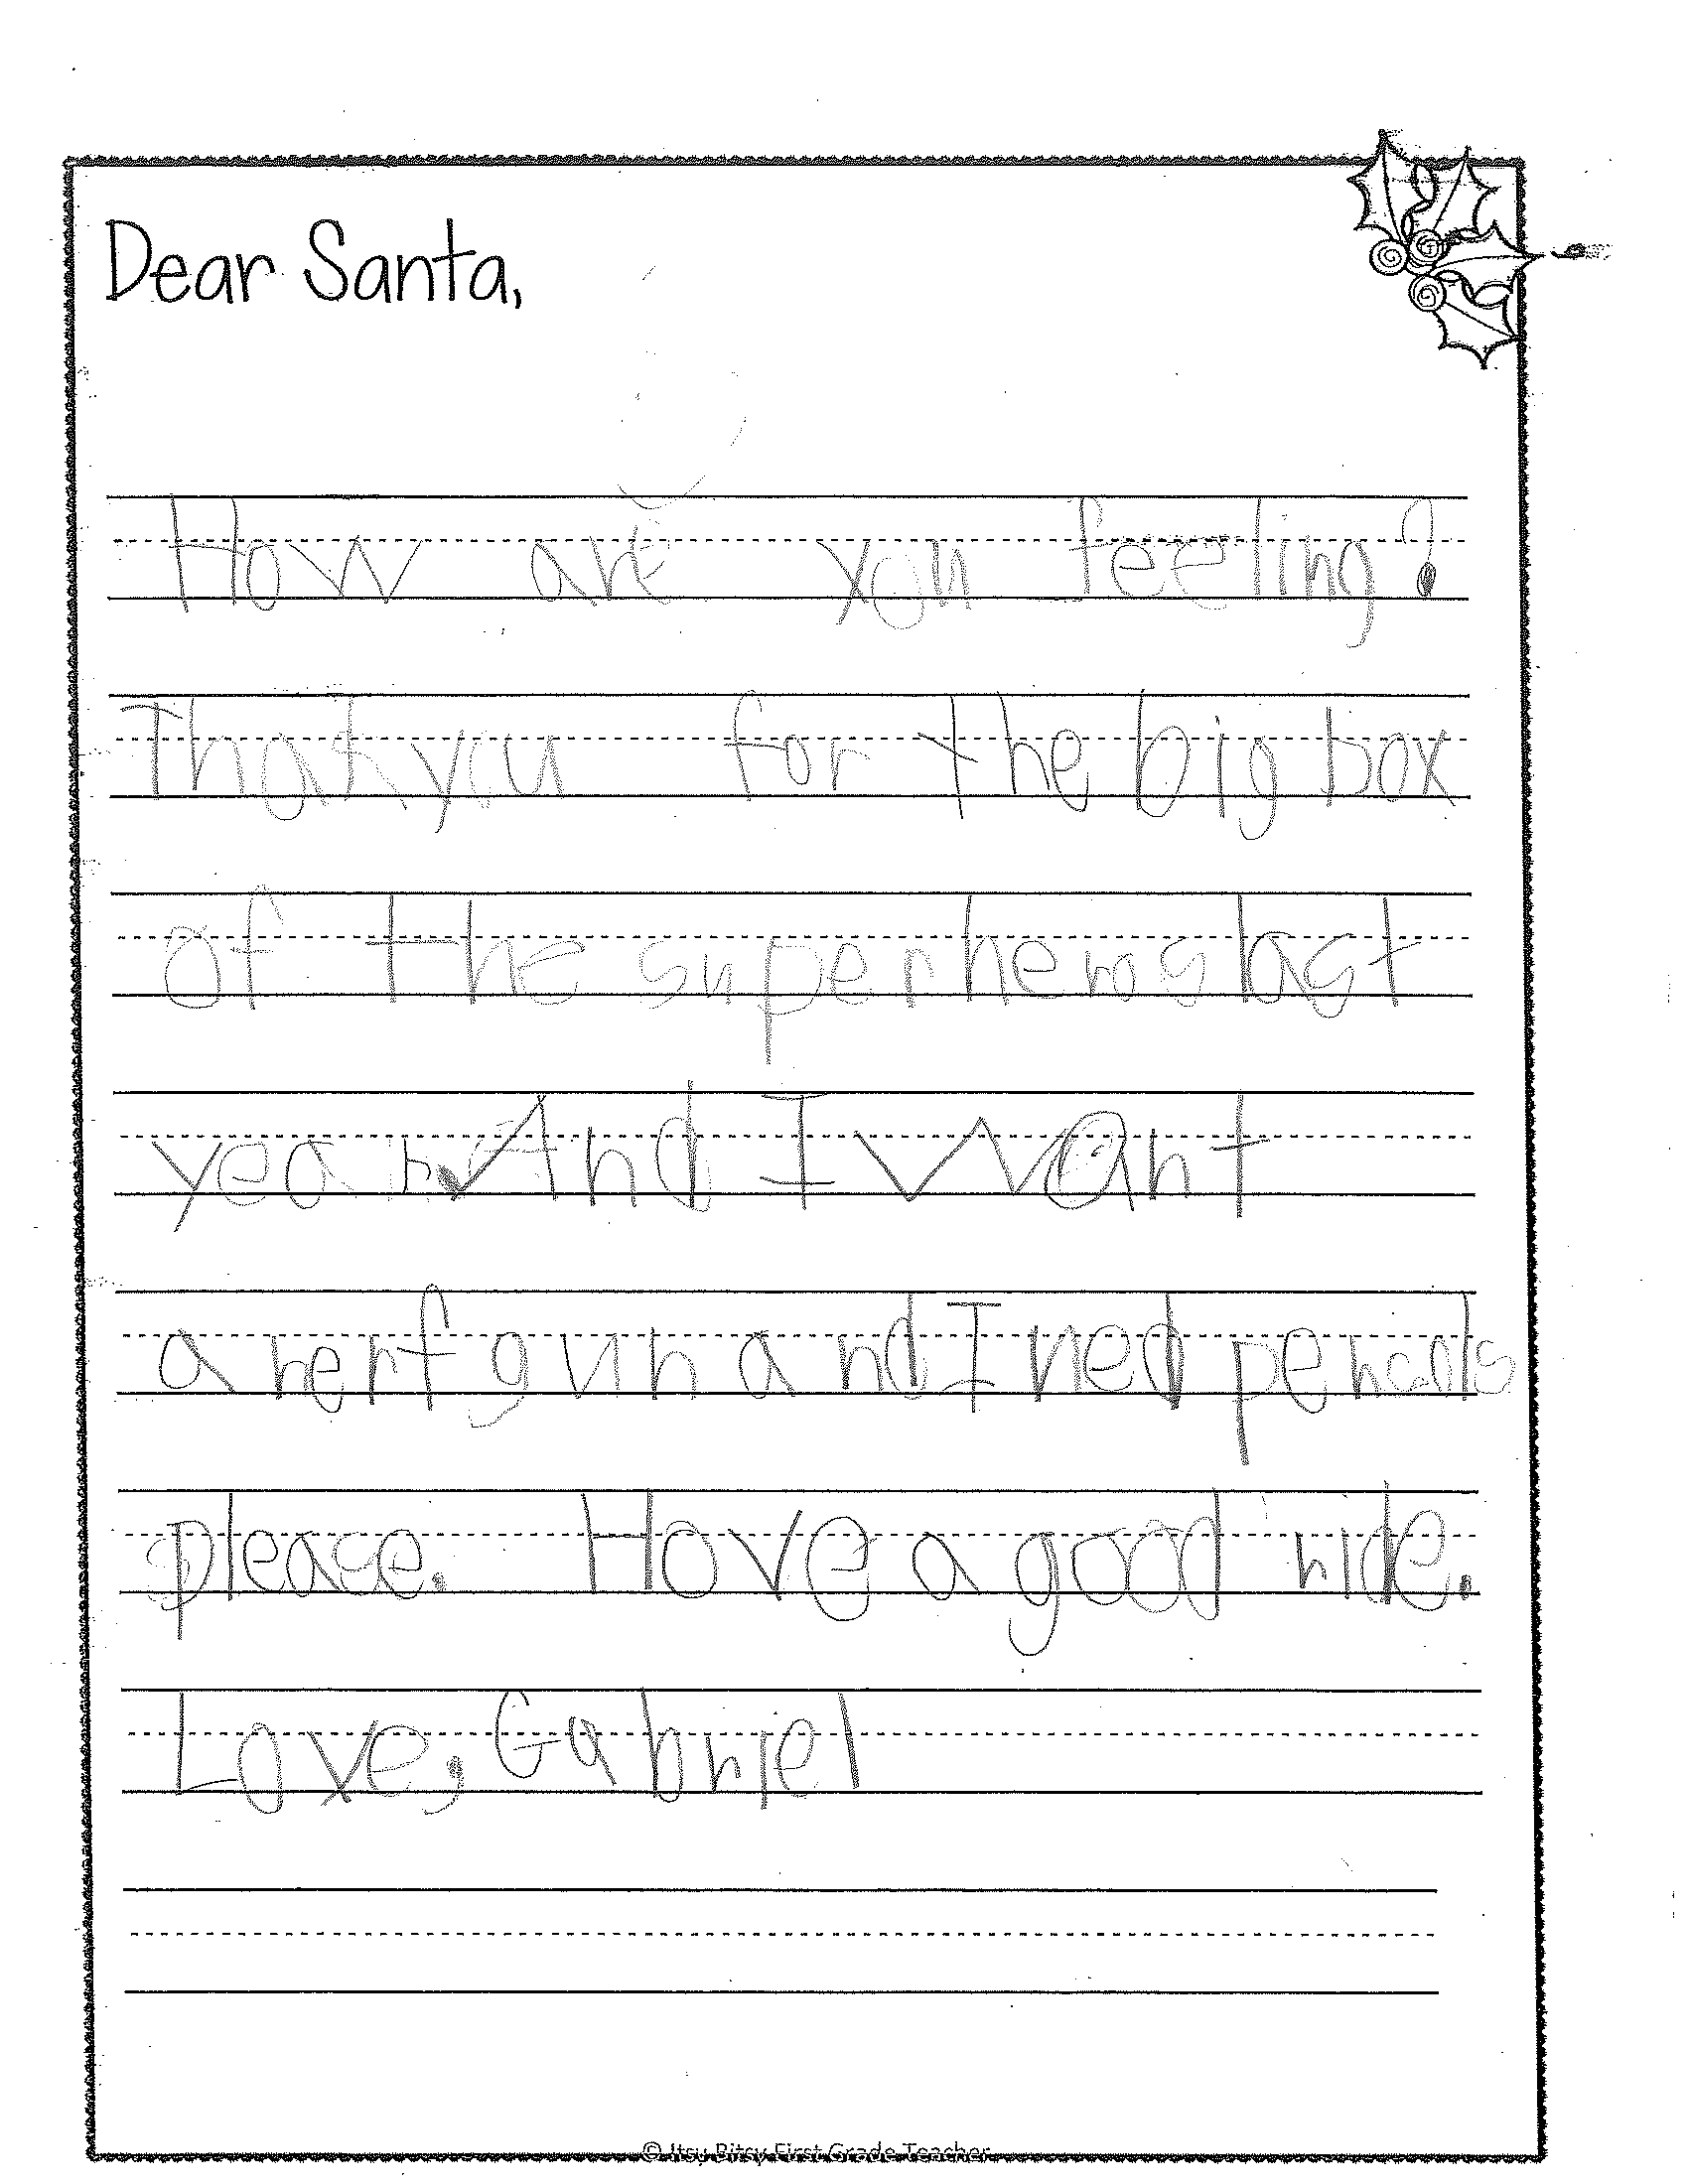 Dear Santa,
How are you feeling?
Thak you for the big box
of the superheros last
year. And I want
a nerf gun and I ned pencals
please. Hove a good ride.
Love, Gabriel
© Itsy Bitsy First Grade Teacher